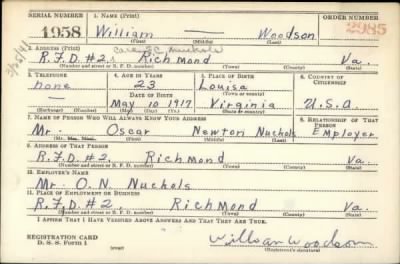 SERIAL NUMBER 1. NAME (Print) ORDER NUMBER
1958 William — Woodson 2985
(First) (Middle) (Last)
2. ADDRESS (Print) care of Nuchols
R.F.D #2. Richmond Va.
(Number and street or R. F. D. number) (Town) (County) (State)
3. TELEPHONE 4. AGE IN YEARS 5. PLACE OF BIRTH 6. COUNTRY OF CITIZENSHIP
none 23 Louisa
DATE OF BIRTH (Town or county)
May 10 1917 Virginia U.S.A.
(Exchange) (Number) (Mo.) (Day) (Yr.) (State or country)
7. NAME OF PERSON WHO WILL ALWAYS KNOW YOUR ADDRESS 8. RELATIONSHIP OF THAT PERSON
Mr. Oscar Newton Nuchols Employer
(Mr., Mrs., Miss) (First) (Middle) (Last)
9. ADDRESS OF THAT PERSON
R.F.D. #2. Richmond Va.
(Number and street or R. F. D. number) (Town) (County) (State)
10. EMPLOYER'S NAME
Mr. O. N. Nuchols
11. PLACE OF EMPLOYMENT OR BUSINESS
R.F.D #2. Richmond Va.
(Number and street or R. F. D. number) (Town) (County) (State)
I AFFIRM THAT I HAVE VERIFIED ABOVE ANSWERS AND THAT THEY ARE TRUE.
REGISTRATION CARD
D. S. S. Form 1 (over) William Woodson
(Registrant's signature)